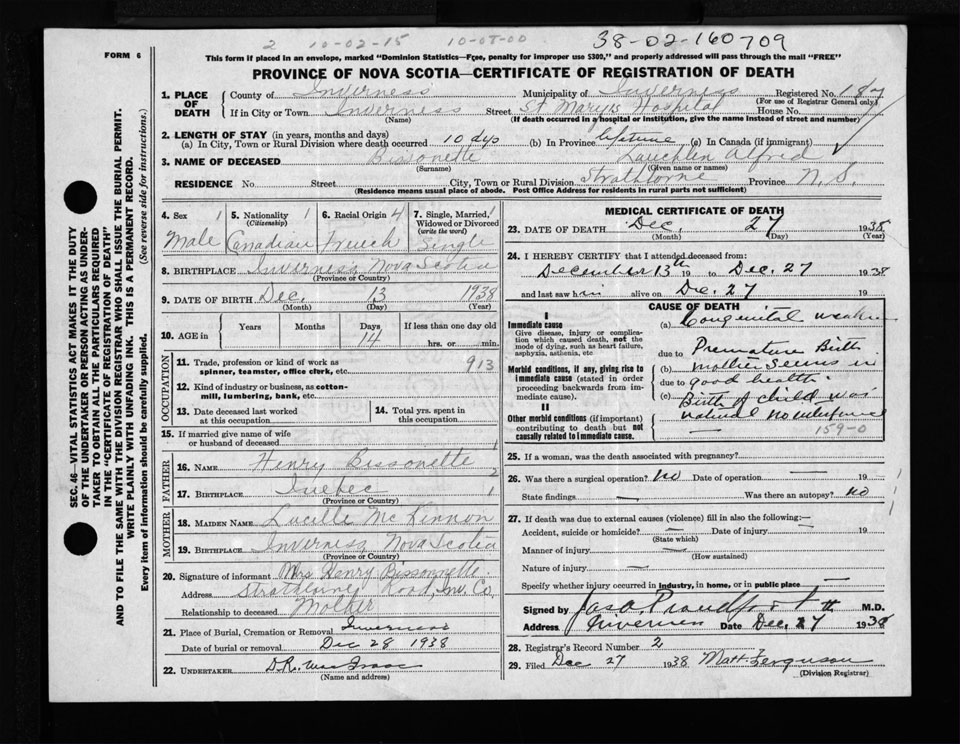 FORM 6
2 10-02-15 10-08-00 38-02-160709
This form if placed in an envelope, marked "Dominion Statistics—Free, penalty for improper use $300," and properly addressed will pass through the mail "FREE"
PROVINCE OF NOVA SCOTIA—CERTIFICATE OF REGISTRATION OF DEATH
1. PLACE OF DEATH County of Inverness Municipality of Inverness Registered No. 187
(For use of Registrar General only)
If in City or Town Inverness Street St Mary's Hospital House No.
(Name) (If death occurred in a hospital or institution, give the name instead of street and number)
2. LENGTH OF STAY (in years, months and days)
(a) In City, Town or Rural Division where death occurred 10 dys (b) In Province lifetime (c) In Canada (if immigrant)
3. NAME OF DECEASED Bissonette Lauchlin Alfred
(Surname) (Given name or names)
RESIDENCE No. Street City, Town or Rural Division Strathlorne Province N. S.
(Residence means usual place of abode. Post Office Address for residents in rural parts not sufficient)
4. Sex 1 5. Nationality 1 (Citizenship) 6. Racial Origin 4 7. Single, Married, Widowed or Divorced (write the word) 1
Male Canadian French Single
8. BIRTHPLACE Inverness Nova Scotia
(Province or Country)
9. DATE OF BIRTH Dec. 13 1938
(Month) (Day) (Year)
10. AGE in Years Months Days 14 If less than one day old hrs. or min.
OCCUPATION
11. Trade, profession or kind of work as spinner, teamster, office clerk, etc. 913
12. Kind of industry or business, as cotton-mill, lumbering, bank, etc.
13. Date deceased last worked at this occupation
14. Total yrs. spent in this occupation
15. If married give name of wife or husband of deceased
FATHER
16. Name Henry Bissonette
17. Birthplace Quebec
(Province or Country)
MOTHER
18. MAIDEN NAME Lucille McKinnon
19. BIRTHPLACE Inverness Nova Scotia
(Province or Country)
20. Signature of informant Mrs Henry Bissonnette
Address Strathlorne Road, Inv. Co.
Relationship to deceased Mother
21. Place of Burial, Cremation or Removal Inverness
Date of burial or removal Dec 28 1938
22. UNDERTAKER D.R. MacIsaac
(Name and address)
MEDICAL CERTIFICATE OF DEATH
23. DATE OF DEATH Dec. 27 1938
(Month) (Day) (Year)
24. I HEREBY CERTIFY that I attended deceased from:
December 13th 19 to Dec. 27 1938
and last saw him alive on Dec. 27 19
CAUSE OF DEATH
I
Immediate cause
Give disease, injury or complication which caused death, not the mode of dying, such as heart failure, asphyxia, asthenia, etc
(a) Congenital weakn
due to
Morbid conditions, if any, giving rise to immediate cause (stated in order proceeding backwards from immediate cause).
(b) Premature Birth
mother seems in
due to good health.
(c) Birth of child was
natural
II
Other morbid conditions (if important) contributing to death but not causally related to immediate cause.
159-0
25. If a woman, was the death associated with pregnancy?
26. Was there a surgical operation? No Date of operation — 19
State findings — Was there an autopsy? No
27. If death was due to external causes (violence) fill in also the following:—
Accident, suicide or homicide? — Date of injury — 19
(State which)
Manner of injury —
(How sustained)
Nature of injury —
Specify whether injury occurred in industry, in home, or in public place —
Signed by Jas. A. Proudfoot M.D.
Address Inverness Date Dec. 27th 1938
28. Registrar's Record Number 2
29. Filed Dec 27 1938 Matt. Ferguson
(Division Registrar)
SEC. 46—VITAL STATISTICS ACT MAKES IT THE DUTY
OF THE UNDERTAKER OR PERSON ACTING AS UNDER-
TAKER TO OBTAIN ALL THE PARTICULARS REQUIRED
IN THE "CERTIFICATE OF REGISTRATION OF DEATH"
AND TO FILE THE SAME WITH THE DIVISION REGISTRAR WHO SHALL ISSUE THE BURIAL PERMIT.
WRITE PLAINLY WITH UNFADING INK. THIS IS A PERMANENT RECORD.
Every item of information should be carefully supplied. (See reverse side for instructions.)